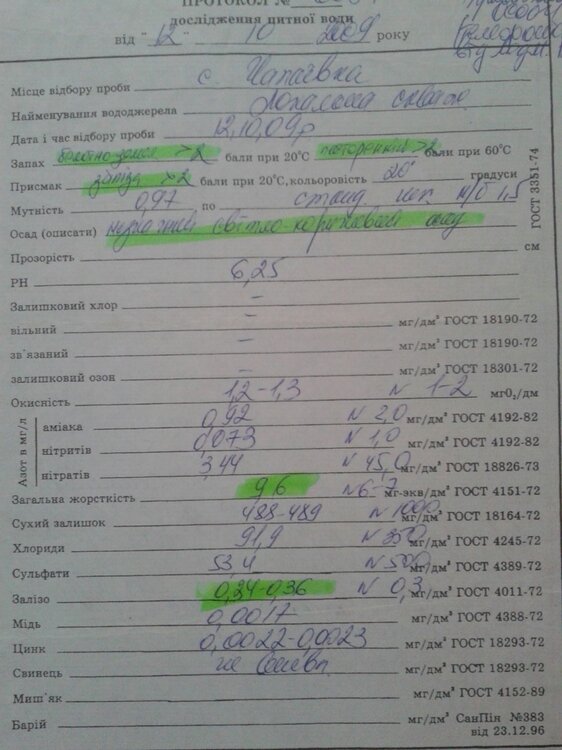 ПРОТОКОЛ №
дослідження питної води
від "12" 10 2009 року
Місце відбору проби с. Чапаєвка
Найменування вододжерела Локальна
Дата і час відбору проби 12,10,09р
Запах >2 бали при 20°С >2 бали при 60°С
Присмак заліза >2 бали при 20°С, кольоровість 20° градуси
Мутність 0,97 по станд. 1,5
Осад (описати) світло-коричневий
Прозорість см
РН 6,25
ГОСТ 3351-74
Залишковий хлор –
вільний – мг/дм³ ГОСТ 18190-72
зв'язаний мг/дм³ ГОСТ 18190-72
залишковий озон – мг/дм³ ГОСТ 18301-72
Окисність 1,2-1,3 N 1-2 мгО₂/дм
Азот в мг/л
аміака 0,92 N 2,0 мг/дм³ ГОСТ 4192-82
нітритів 0,073 N 1,0 мг/дм³ ГОСТ 4192-82
нітратів 3,44 N 45,0 мг/дм³ ГОСТ 18826-73
Загальна жорсткість 9,6 N 6-7 мг-экв/дм³ ГОСТ 4151-72
Сухий залишок 488-489 N 1000 мг/дм³ ГОСТ 18164-72
Хлориди 91,9 N 350 мг/дм³ ГОСТ 4245-72
Сульфати 53,4 N 500 мг/дм³ ГОСТ 4389-72
Залізо 0,34-0,36 N 0,3 мг/дм³ ГОСТ 4011-72
Мідь 0,0017 мг/дм³ ГОСТ 4388-72
Цинк 0,0022-0,0023 мг/дм³ ГОСТ 18293-72
Свинець не мг/дм³ ГОСТ 18293-72
Миш'як мг/дм³ ГОСТ 4152-89
Барій мг/дм³ СанПін №383
від 23.12.96